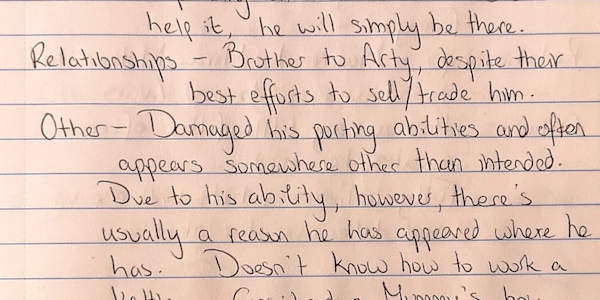 help it, he will simply be there.
Relationships - Brother to Arty, despite their
best efforts to sell/trade him.
Other - Damaged his porting abilities and often
appears somewhere other than intended.
Due to his ability, however, there's
usually a reason he has appeared where he
has. Doesn't know how to work a